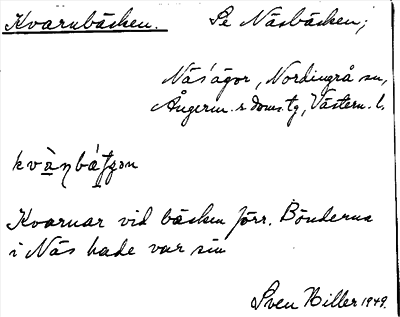 Kvarnbäcken. Se Näsbäcken;
Näs' ägor, Nordingrå sn,
Ångerm. s doms. tg, Västern. l.
kvànbáʃʒən
Kvarnar vid bäcken förr. Bönderna
i Näs hade var sin
Sven Hiller 1949.